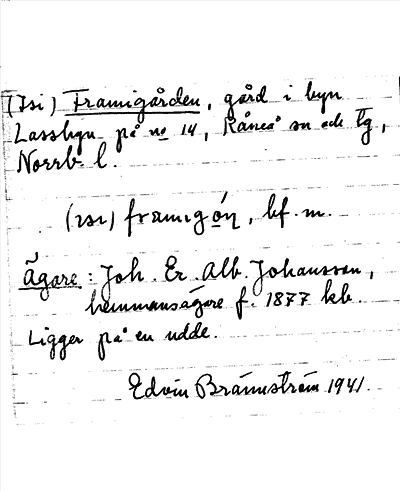 (Isi) Framigården, gård i byn
Lassbyn på no 14, Råneå sn och tg,
Norrb. l.
(ısı) framıgón, bf. m.
Ägare: Joh. Er. Alb. Johansson,
hemmansägare f. 1877 kb.
Ligger på en udde.
Edvin Brännström 1941.